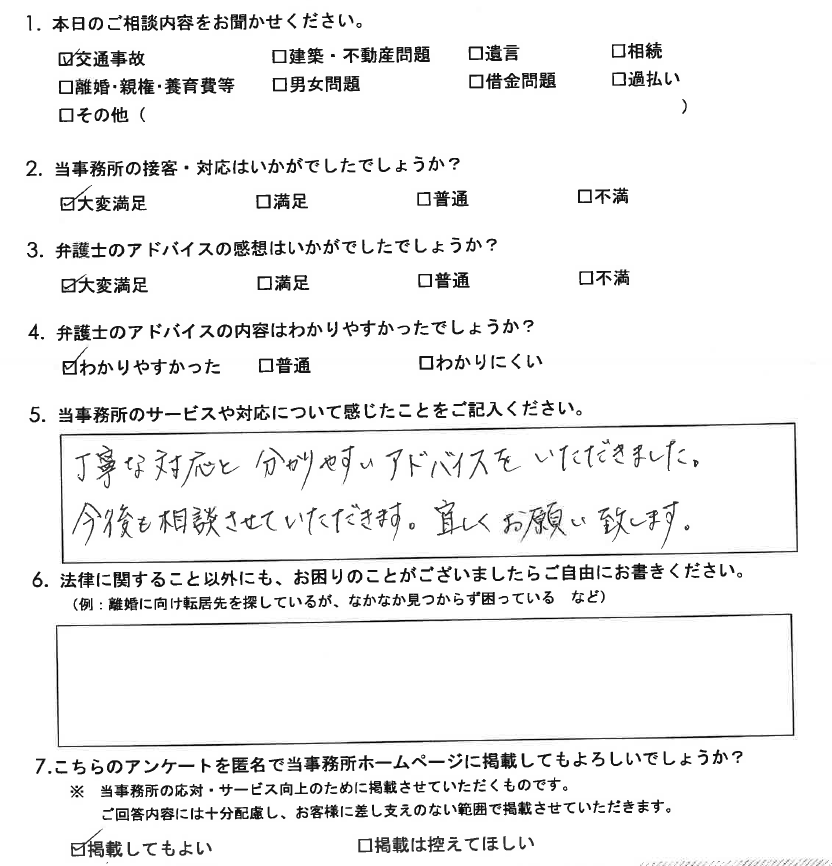 1. 本日のご相談内容をお聞かせください。
☑交通事故 □建築・不動産問題 □遺言 □相続
□離婚・親権・養育費等 □男女問題 □借金問題 □過払い
□その他( )
2. 当事務所の接客・対応はいかがでしたでしょうか？
☑大変満足 □満足 □普通 □不満
3. 弁護士のアドバイスの感想はいかがでしたでしょうか？
☑大変満足 □満足 □普通 □不満
4. 弁護士のアドバイスの内容はわかりやすかったでしょうか？
☑わかりやすかった □普通 □わかりにくい
5. 当事務所のサービスや対応について感じたことをご記入ください。
丁寧な対応と分かりやすいアドバイスをいただきました。
今後も相談させていただきます。宜しくお願い致します。
6. 法律に関すること以外にも、お困りのことがございましたらご自由にお書きください。
（例：離婚に向け転居先を探しているが、なかなか見つからず困っている　など）
7.こちらのアンケートを匿名で当事務所ホームページに掲載してもよろしいでしょうか？
※　当事務所の応対・サービス向上のために掲載させていただくものです。
ご回答内容には十分配慮し、お客様に差し支えのない範囲で掲載させていただきます。
☑掲載してもよい □掲載は控えてほしい